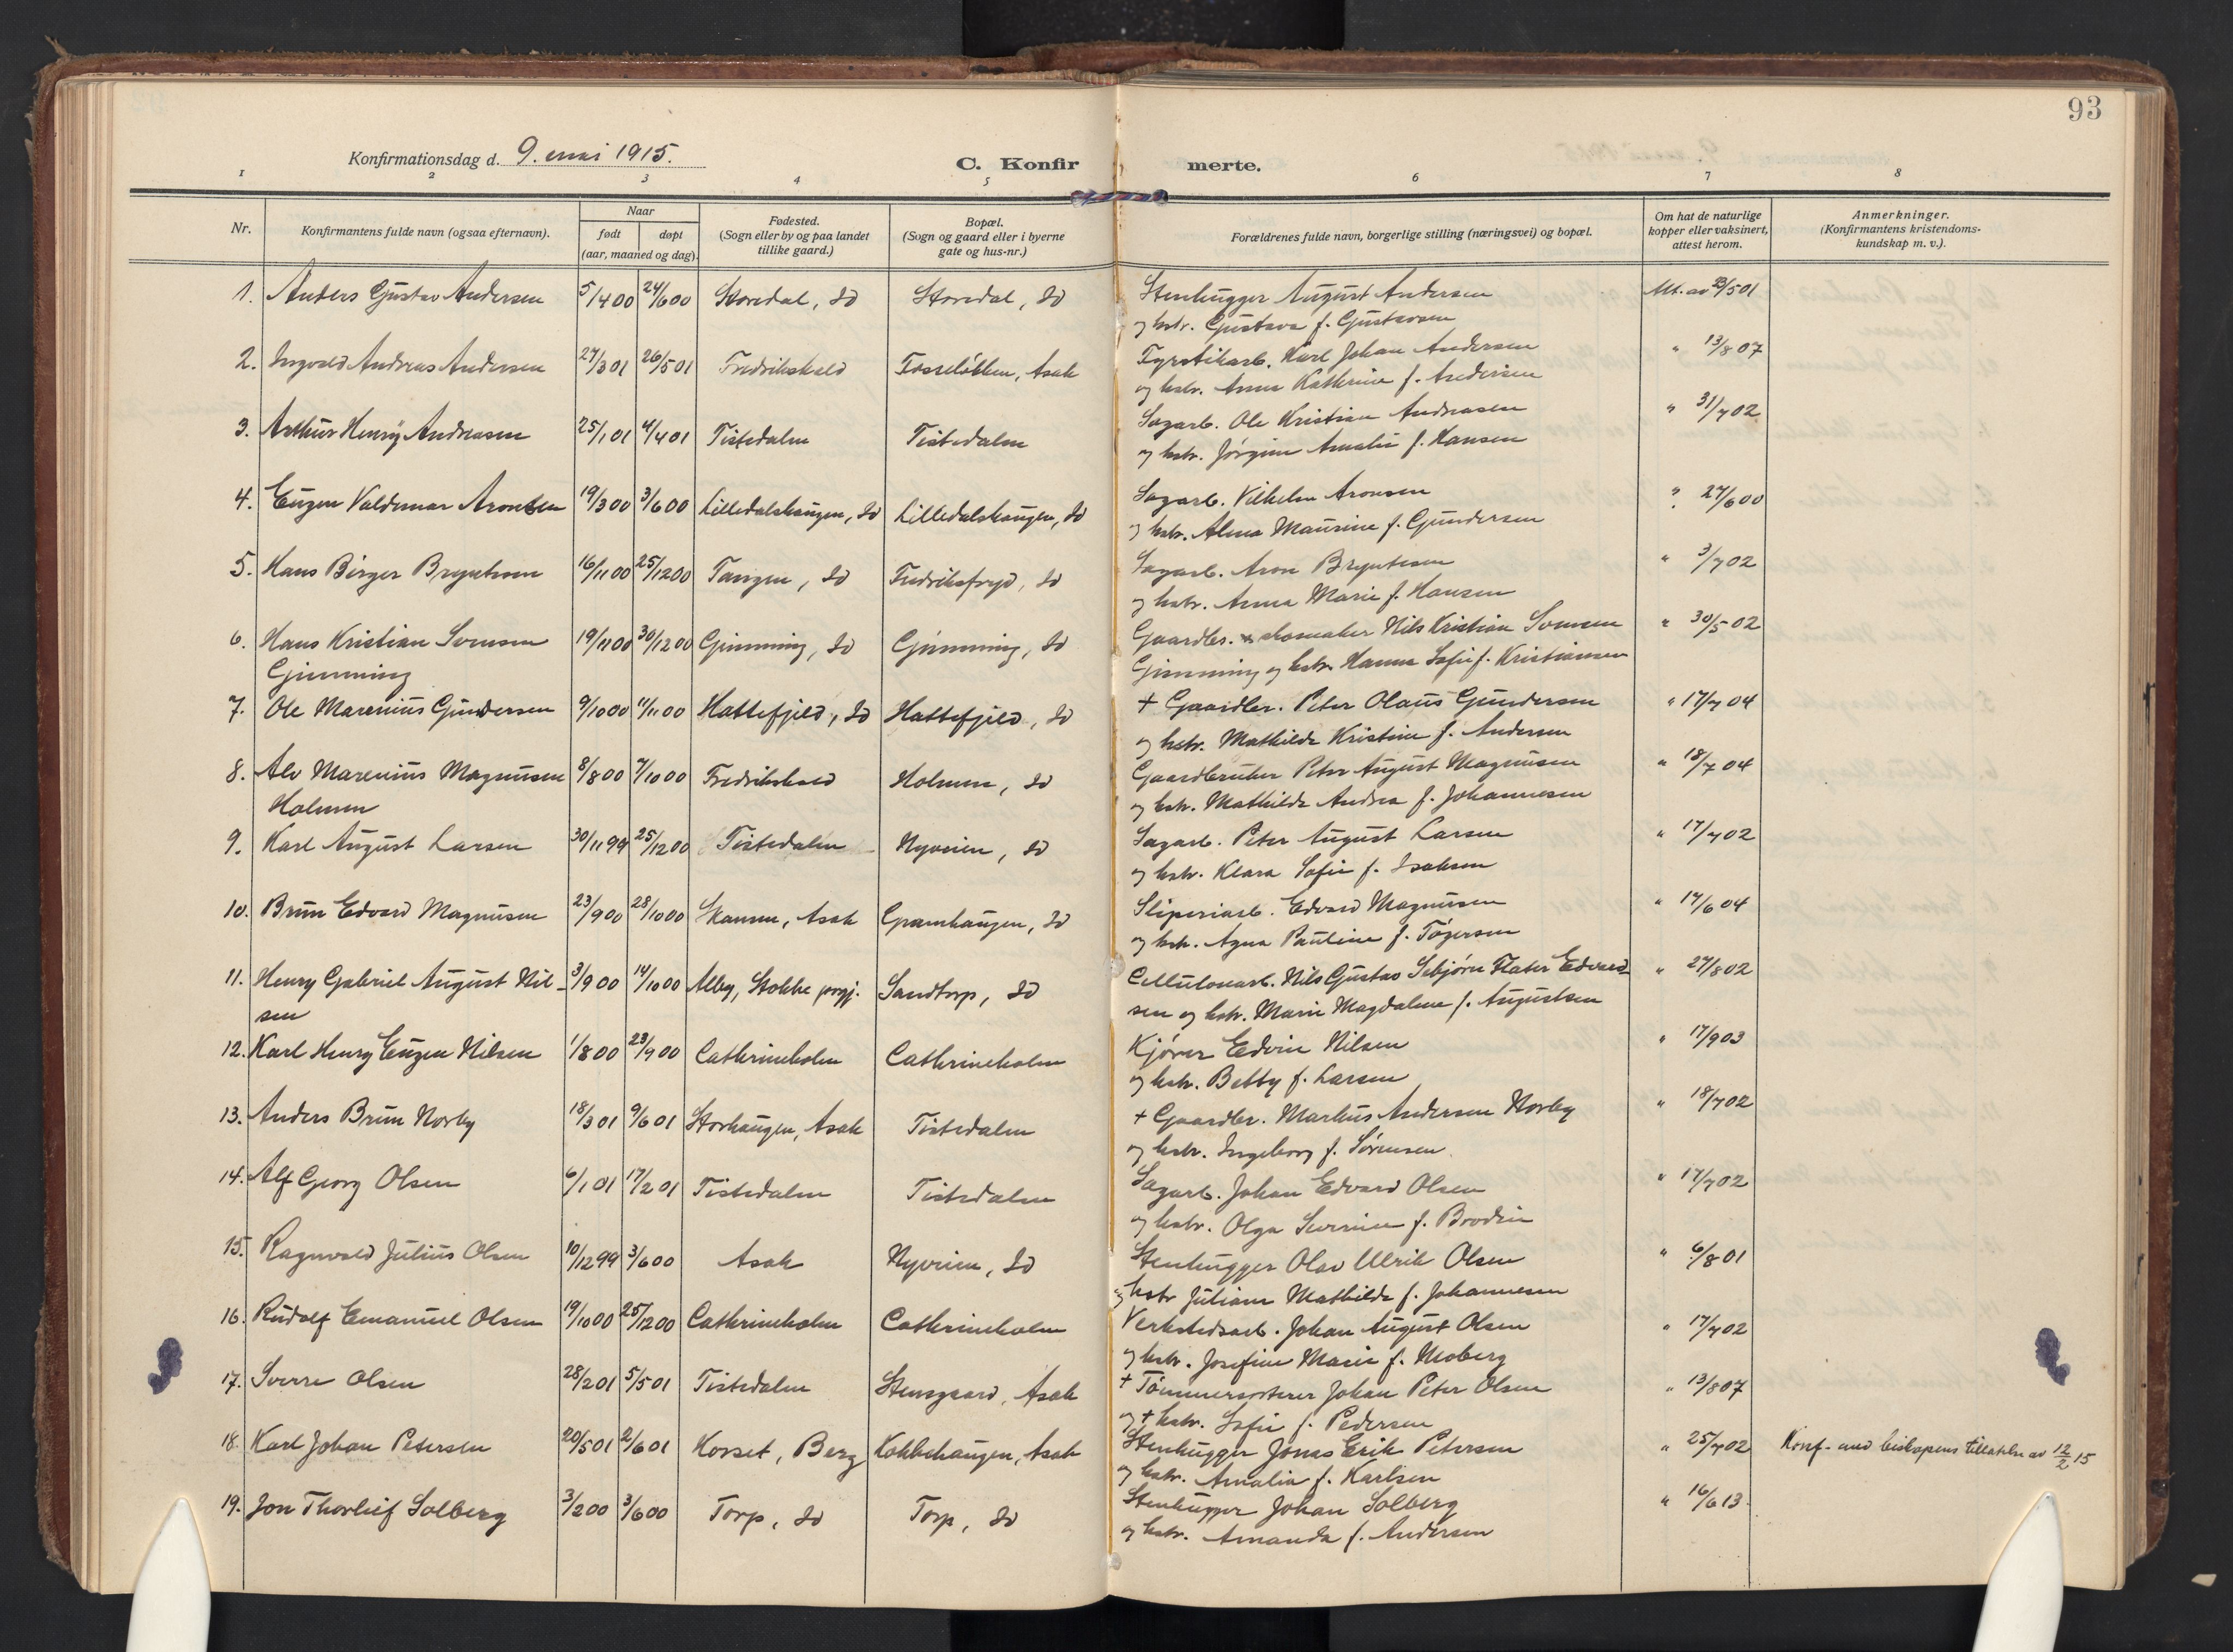 93
Konfirmationsdag d. 9. mai 1915.
C. Konfirmerte.
1 2 3 4 5 6 7 8
Nr.
Konfirmantens fulde navn (ogsaa efternavn).
Naar
født
døpt
(aar, maaned og dag).
Fødested.
(Sogn eller by og paa landet
tillike gaard.)
Bopæl.
(Sogn og gaard eller i byerne
gate og hus-nr.)
Forældrenes fulde navn, borgerlige stilling (næringsvei) og bopæl.
Om hat de naturlige
kopper eller vaksinert,
attest herom.
Anmerkninger.
(Konfirmantens kristendoms-
kundskap m. v.).
1. Anders Gustav Andersen 5/4 00 24/6 00 Storedal, Id Storedal, Id Stenhugger August Andersen Att. av /5 01
og hstr. Gustava f. Gustavsen
2. Ingvald Andreas Andersen 27/3 01 26/5 01 Fredrikshald Fosseløkken, Asak Fyrstikarb. Karl Johan Andersen " 13/8 07
og hstr. Anna Kathrine f. Andersen
3. Arthur Henry Andreasen 25/1 01 4/4 01 Tistedalen Tistedalen Sagarb. Ole Kristian Andreasen " 31/7 02
og hstr. Jørgine Amalie f. Hansen
4. Eugen Valdemar Aronsen 19/3 00 3/6 00 Lilledalshaugen, Id Lilledalshaugen, Id Sagarb. Vilhelm Aronsen " 27/6 00
og hstr. Alma Maurine f. Gundersen
5. Hans Birger Bryntesen 16/11 00 25/12 00 Tangen, Id Fredriksfryd, Id Sagarb. Aron Bryntesen " 3/7 02
og hstr. Anna Marie f. Hansen
6. Hans Kristian Svensen 19/11 00 30/12 00 Gimming, Id Gimming, Id Gaardbr. & skomaker Nils Kristian Svensen " 30/5 02
Gimming Gimming og hstr. Hanna Sofie f. Kristiansen
7. Ole Marenius Gundersen 9/10 00 11/11 00 Hattefjeld, Id Hattefjeld, Id + Gaardbr. Peter Olaus Gundersen " 17/7 04
og hstr. Mathilde Kristine f. Andersen
8. Alv Marenius Magnusen 8/8 00 7/10 00 Fredrikshald Holmen, Id Gaardbruker Peter August Magnusen " 18/7 04
Holmen og hstr. Mathilde Andrea f. Johannesen
9. Karl August Larsen 30/11 99 25/12 00 Tistedalen Nyveien, Id Sagarb. Peter August Larsen " 17/7 02
og hstr. Klara Sofie f. Isaksen
10. Brun Edvard Magnusen 23/9 00 28/10 00 Skansen, Asak Granhaugen, Id Sliperiarb. Edvard Magnusen " 17/6 04
og hstr. Agna Pauline f. Tøgersen
11. Henry Gabriel August Nil- 3/9 00 14/10 00 Alby, Stokke prgj. Sandtorp, Id Cellulosearb. Nils Gustav Edvard- " 27/8 02
sen sen og hstr. Marie Magdalene f. Augustsen
12. Karl Henry Eugen Nilsen 1/8 00 23/9 00 Cathrineholm Cathrineholm Kjører Edvin Nilsen " 17/9 03
og hstr. Betty f. Larsen
13. Anders Brun Norby 18/3 01 9/6 01 Storhaugen, Asak Tistedalen + Gaardbr. Markus Andersen Norby " 18/7 02
og hstr. Ingeborg f. Sørensen
14. Alf Georg Olsen 6/1 01 17/2 01 Tistedalen Tistedalen Sagarb. Johan Edvard Olsen " 17/7 02
og hstr. Olga Severine f. Brodin
15. Ragnvald Julius Olsen 10/12 99 3/6 00 Asak Nyveien, Id Stenhugger Olav Ulrik Olsen " 6/8 01
og hstr Juliane Mathilde f. Johannesen
16. Rudolf Emanuel Olsen 19/10 00 25/12 00 Cathrineholm Cathrineholm Verkstedsarb. Johan August Olsen " 17/7 02
og hstr. Josefine Marie f. Moberg
17. Sverre Olsen 28/2 01 5/5 01 Tistedalen Stensgaard, Asak + Tømmersorterer Johan Peter Olsen " 13/8 07
og + hstr. Sofie f. Pedersen
18. Karl Johan Petersen 20/5 01 2/6 01 Korset, Berg Kokkehaugen, Asak Stenhugger Jonas Erik Petersen " 25/7 02 Konf. med biskopens tillatelse av 12/2 15
og hstr. Amalia f. Karlsen
19. Jon Thorleif Solberg 3/2 00 3/6 00 Torp, Id Torp, Id Stenhugger Johan Solberg " 16/6 13
og hstr. Amanda f. Andersen